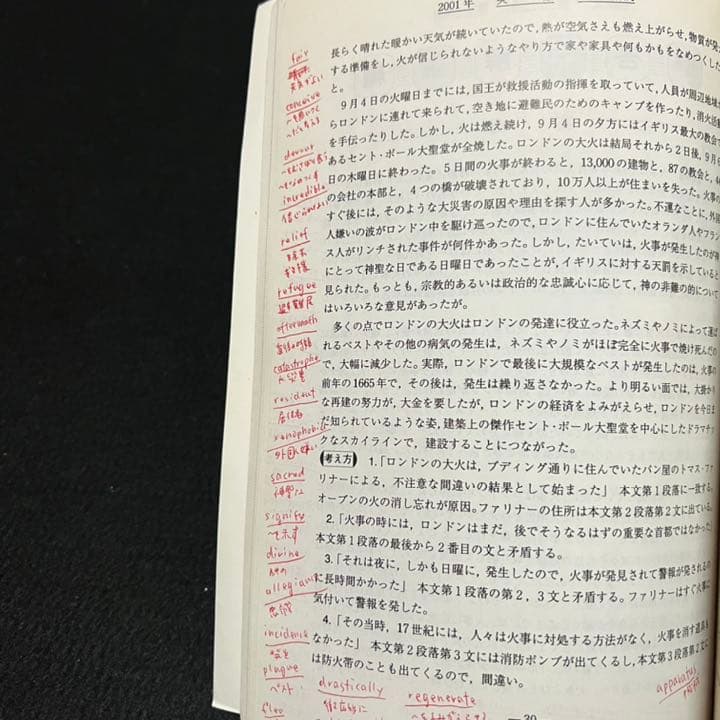 2001年
長らく晴れた暖かい天気が続いていたので，熱が空気さえも燃え上がらせ，物質が発
する準備をし，火が信じられないようなやり方で家や家具や何もかもをなめつくした
と。
9月4日の火曜日までには，国王が救援活動の指揮を取っていて，人員が周辺地域か
らロンドンに連れて来られて，空き地に避難民のためのキャンプを作ったり，消火活動
を手伝ったりした。しかし，火は燃え続け，9月4日の夕方にはイギリス最大の教会で
あるセント・ポール大聖堂が全焼した。ロンドンの大火は結局それから2日後，9月6
日の木曜日に終わった。5日間の火事が終わると，13,000の建物と，87の教会と，44
の会社の本部と，4つの橋が破壊されており，10万人以上が住まいを失った。火事の
すぐ後には，そのような大災害の原因や理由を探す人が多かった。不運なことに，外国
人嫌いの波がロンドン中を駆け巡ったので，ロンドンに住んでいたオランダ人やフラン
ス人がリンチされた事件が何件かあった。しかし，たいていは，火事が発生したのが
にとって神聖な日である日曜日であったことが，イギリスに対する天罰を示していると
見られた。もっとも，宗教的あるいは政治的な忠誠心に応じて，神の非難の的について
はいろいろな意見があったが。
多くの点でロンドンの大火はロンドンの発達に役立った。ネズミやノミによって運ば
れるペストやその他の病気の発生は，ネズミやノミがほぼ完全に火事で焼け死んだの
で，大幅に減少した。実際，ロンドンで最後に大規模なペストが発生したのは，火事の
前年の1665年で，その後は，発生は繰り返さなかった。より明るい面では，大掛かり
な再建の努力が，大金を要したが，ロンドンの経済をよみがえらせ，ロンドンを今日ま
だ知られているような姿，建築上の傑作セント・ポール大聖堂を中心にしたドラマチッ
クなスカイラインで，建設することにつながった。
考え方 1.「ロンドンの大火は，プディング通りに住んでいたパン屋のトマス・ファ
リナーによる，不注意な間違いの結果として始まった」 本文第1段落に一致する。
オーブンの火の消し忘れが原因。ファリナーの住所は本文第2段落第2文に出ている。
2.「火事の時には，ロンドンはまだ，後でそうなるはずの重要な首都ではなかった」
本文第1段落の最後から2番目の文と矛盾する。
3.「それは夜に，しかも日曜に，発生したので，火事が発見されて警報が発されるの
に長時間かかった」 本文第1段落の第2，3文と矛盾する。ファリナーはすぐ火事に
気付いて警報を発した。
4.「その当時，17世紀には，人々は火事に対処する方法がなく，火事を消す道具も
なかった」 本文第2段落第3文には消防ポンプが出てくるし，本文第3段落第2文に
は防火帯のことも出てくるので，間違い。
30
fair
天気がよい
conceive
devour
incredible
信じられない
relief
救援
refugee
避難民
aftermath
catastrophe
大災害
resident
居住者
xenophobic
外国人嫌い
sacred
神聖な
signify
〜を示す
divine
神の
allegiance
忠誠
incidence
発生
plague
ペスト
drastically
徹底的に
regenerate
apparatus